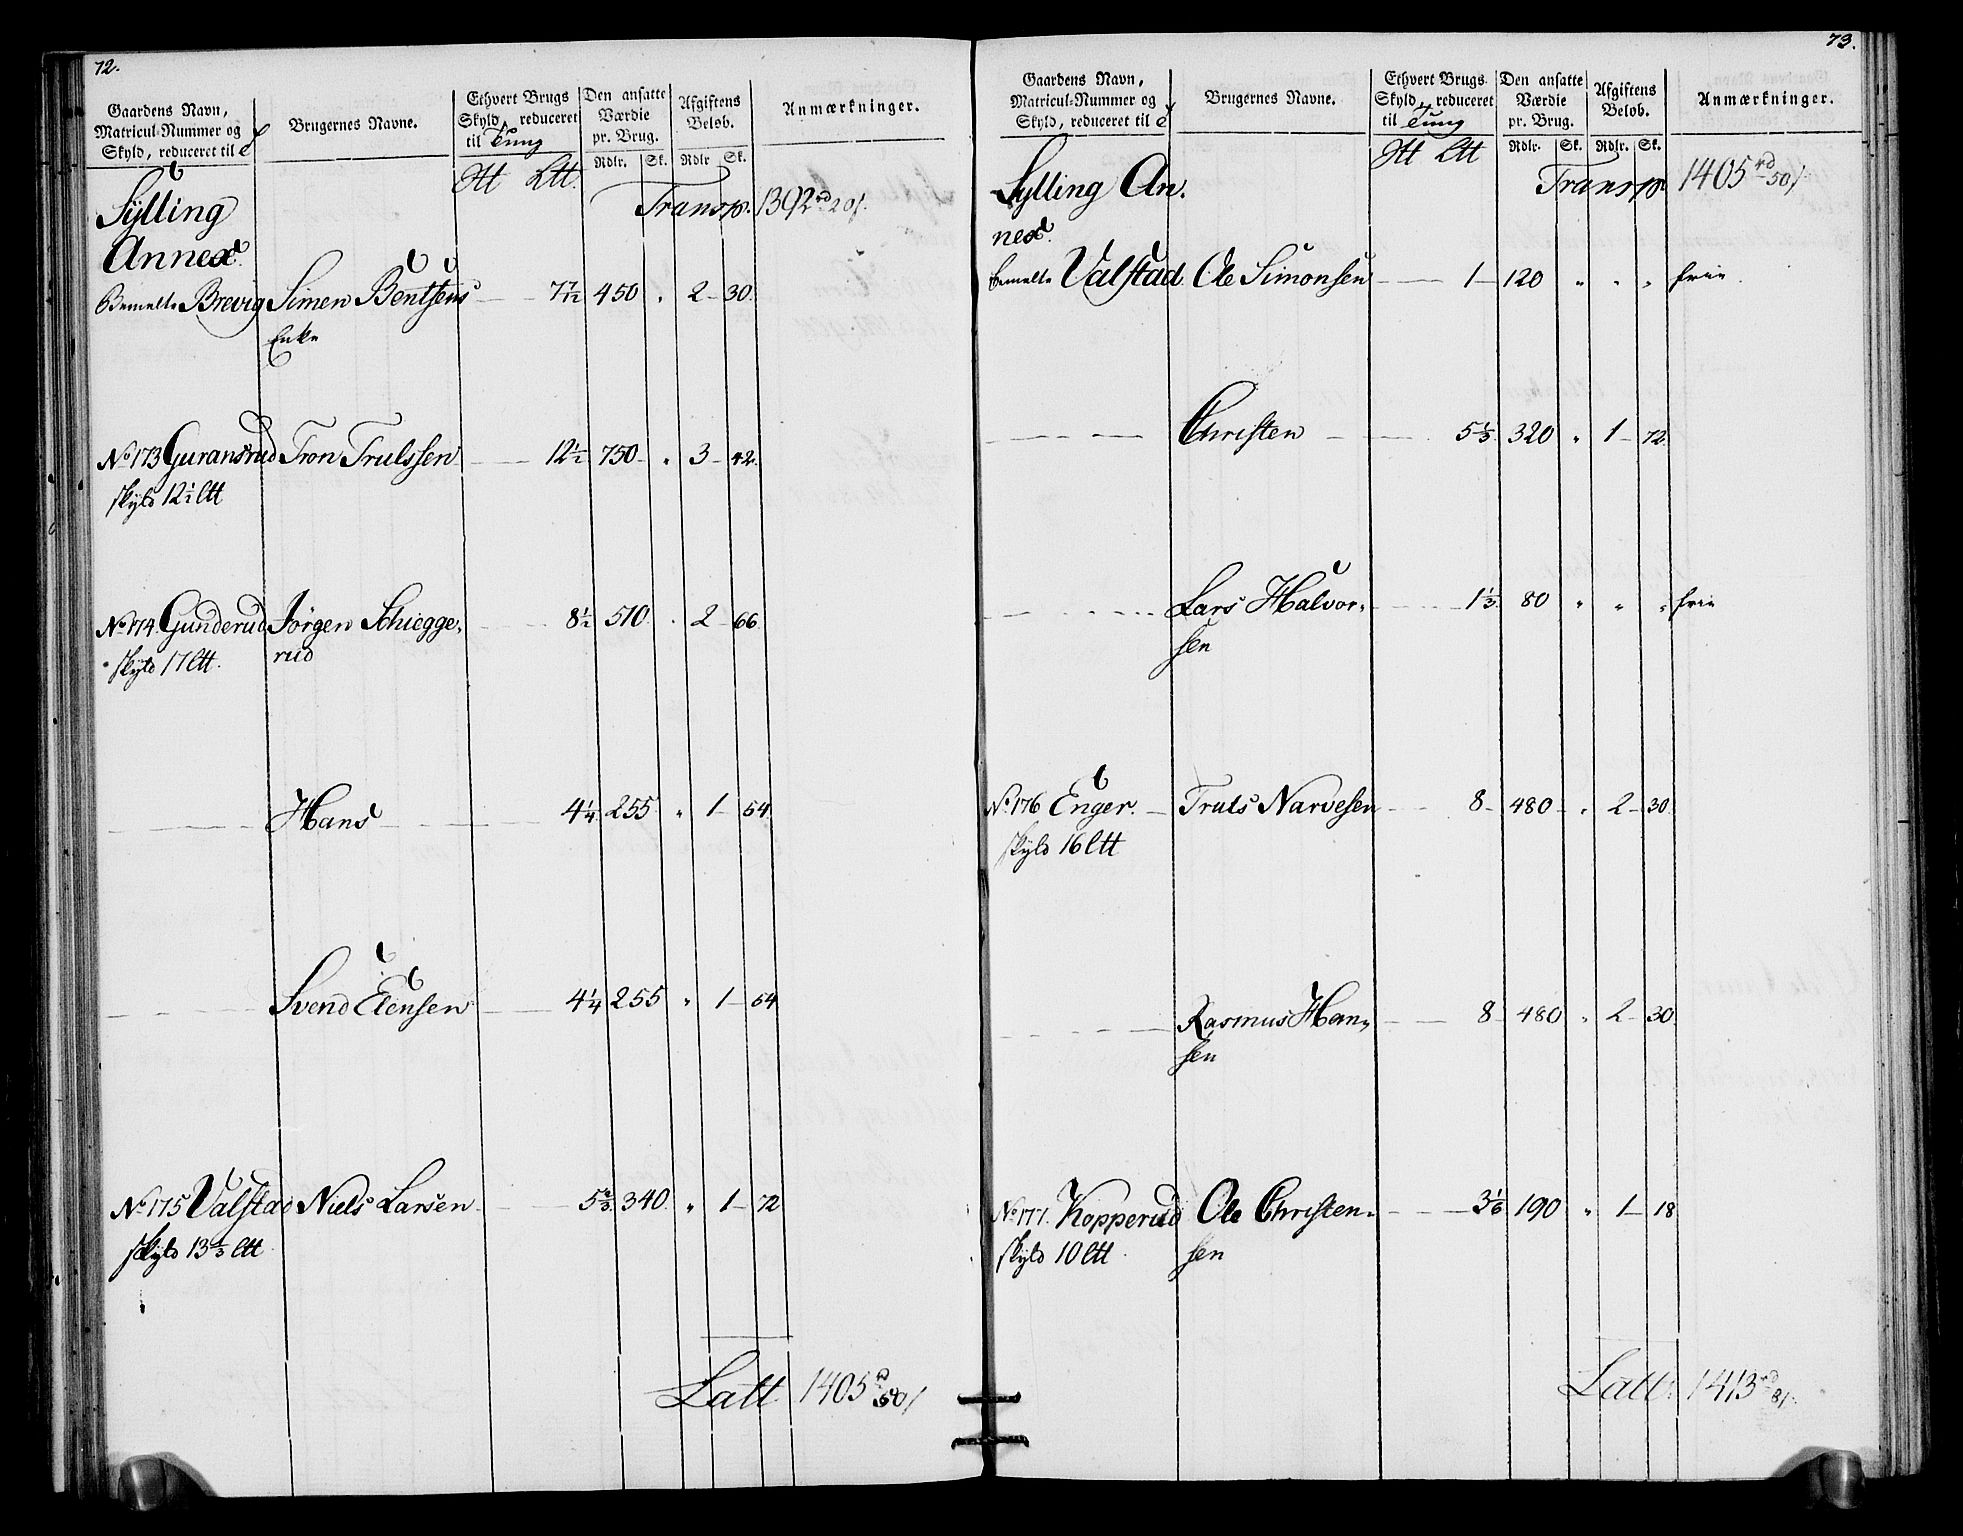 72.
Gaardens Navn,
Matricul-Nummer og
Skyld, reduceret til
Brugernes Navne.
Ethvert Brugs
Skyld, reduceret
til Tung
Den ansatte
Værdie
pr. Brug.
Afgiftens
Beløb.
Anmærkninger.
Rdlr. Sk. Rdlr Sk.
Ltt.
Transp. 1392 rd 20 s.
Sylling
Annex.
Bemelte Brevig Simen Bentsens 7 7/12 450 " 2 - 30.
Enke
No 173 Guransrud Tron Trulssen 12 1/2 750 - " 3 - 42.
skyld 12 1/2 ltt
No 174. Gunderud Jørgen Schiegge, 8 1/2 510. " 2 - 66
skyld 17 ltt. rud
Hans 4 1/4 255 " 1 - 54
Svend Elensen 4 1/4 255 " 1 - 54
No 175 Valstad Niels Larsen 5 2/3 340. " 1 - 72
skyld 13 2/3 ltt
Latt 1405 rd 50 s
73.
Gaardens Navn,
Matricul-Nummer og
Skyld, reduceret til
Brugernes Navne.
Ethvert Brugs
Skyld, reduceret
til Tung
Den ansatte
Værdie
pr. Brug.
Afgiftens
Beløb.
Anmærkninger.
Rdlr. Sk. Rdlr. Sk.
Ltt
Transp 1405 rd 50 s
Sylling An.
nex.
bemelte Valstad Ole Simonsen 1 - 120 " " " frie.
Christen 5 1/3 320 " 1 - 72.
Lars Halvor, 1 1/3 80 " " " frie
sen
No 176 Enger. Truls Narvesen 8 - 480 - " 2 - 30.
skyld 16 ltt
Rasmus Han, 8 - 480 " 2 - 30.
sen
No 177. Kopperud Ole Christen, 3 1/6 190 " 1 - 18
skyld 10 ltt. sen
Latt. 1413 rd 8 s.